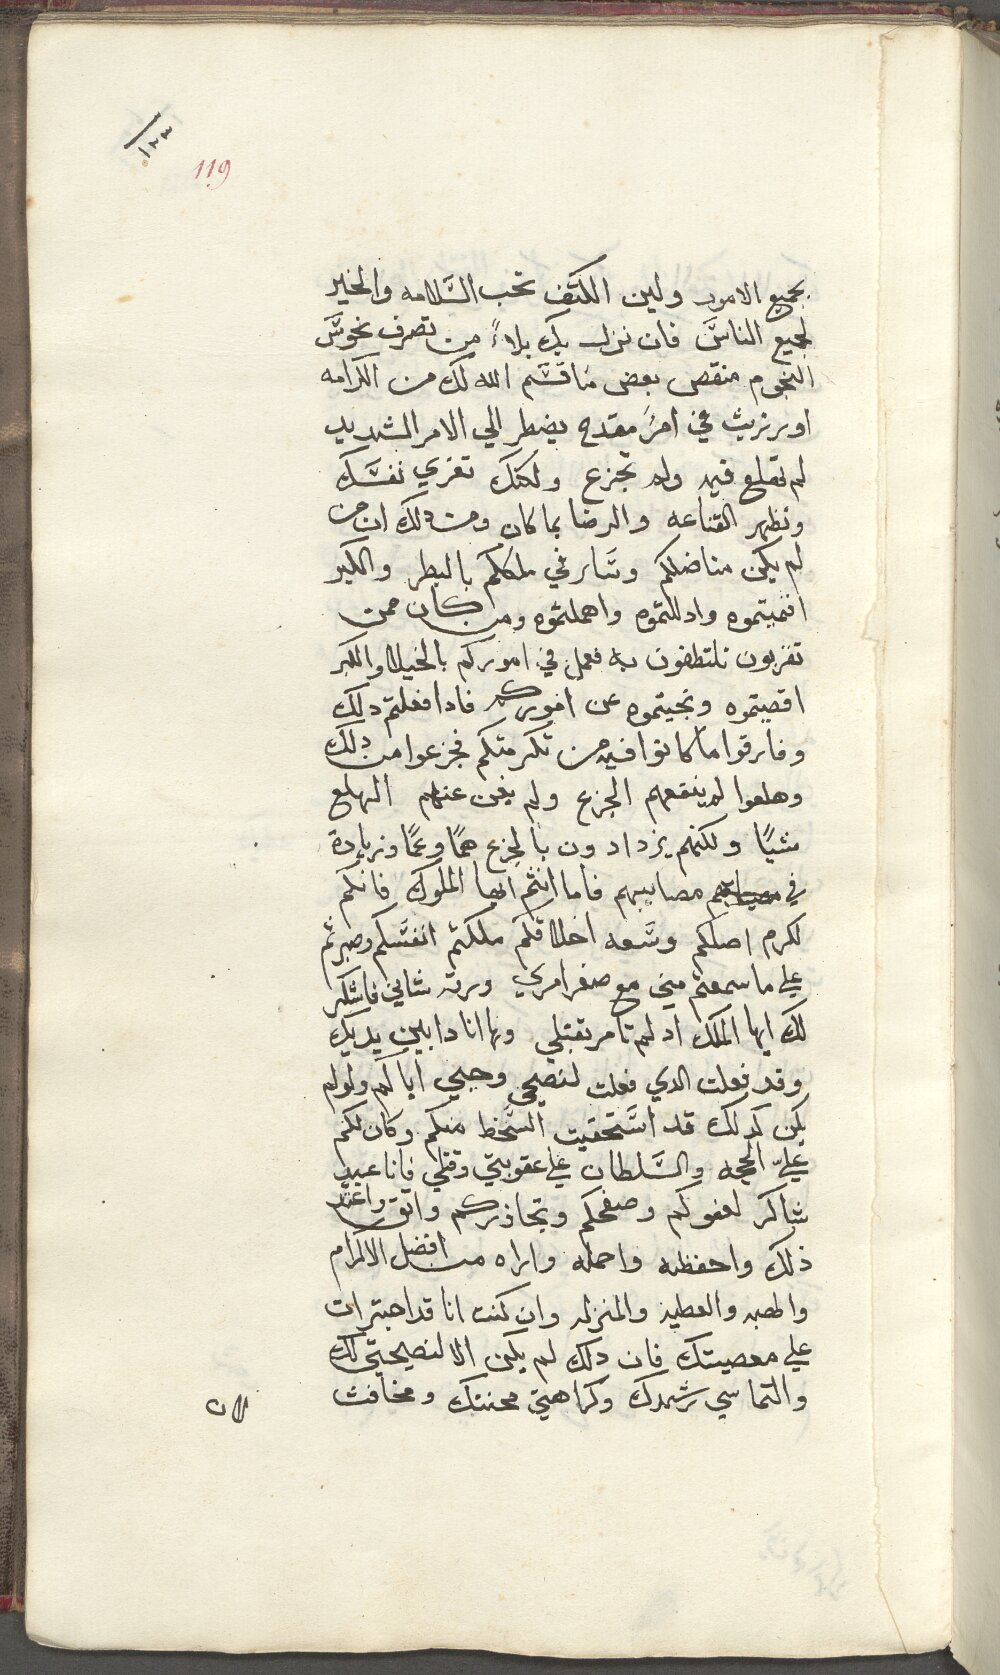 ١٢٣
119
بجميع الامور ولين الكتف تحب السَّلامه والخير
لجميع الناسَّ فان نزل بك بلاءً من تصرف نحوسَّ
النجوم منقص بعض مَا قسَّم الله لك من الكرامه
او رزيت في امرً مقدح يضطر الي الامر الشديد
لم تهلع فيه ولم تجزع ولكنك تعزي نفسَّك
وتظهر القناعه والرضا بما كان ومن دلك ان من
لم يكن مناضلكم وسَّار في ملككم بالبطر والكبر
اقميتموه وادللتموه واهملتموه ومن كان ممن
تقربون تلتطفون به فعمل في اموركم بالخيلا والكبر
اقصيتموه ونحيتموه عن اموركم فادا فعلتم دلك
وفارقوا ما كانوا فيه من تكرمتكم فجزعوا من دلك
وهلعوا لم ينفعهم الجزع ولم يغن عنهم الهلع
شيًا ولكنهم يزدادون بالجزع همًا وغمًا وزيادة
في مصايبهم فاما انتم ايها الملوك فانكم
لكرم اصلكم وسَّعه اخلاقكم ملكتم انفسَّكم وصبرتم
علي ما سمعتم مني مع صغر امري ورتة شاني فاشكر
لك ايها الملك اد لم تامر بقتلي وها انا دا بين يديك
وقد فعلت الدي فعلت لنصحي وحبي اياكم ولو لم
يكن كدلك قد استَّحقيت السَّخط منكم وكان لكم
عليَّ الحجه والسَّلطان علي عقوبتي وقتلي فانا عبد
شاكر لعفوكم وصفحكم وتجاوزكم واثق واعتد
ذلك واحفظه واحمله واراه من افضل الاكرام
والهبه والعطيه والمنزله وان كنت انا قد اجترات
علي معصيتك فان دلك لم يكن الا لنصيحتي لك
والتماسي رشدك وكراهيتي محنتك ومخافت
لان